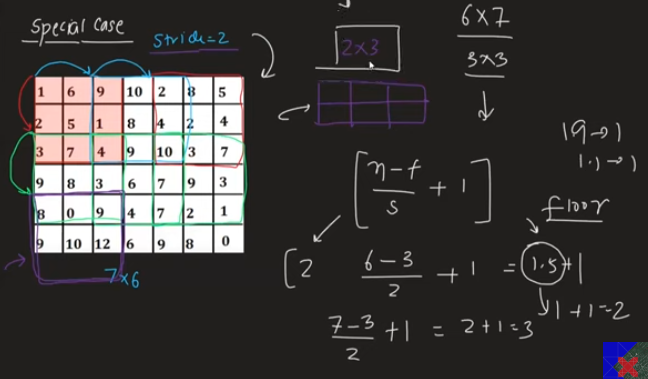 Special Case
Stride=2
2×3
6×7
3×3
1 6 9 10 2 8 5
2 5 1 8 4 2 4
3 7 4 9 10 3 7
9 8 3 6 7 9 3
8 0 9 4 7 2 1
9 10 12 6 9 8 0
7×6
[n-f/s + 1]
1.9→1
1.1→1
floor
[2
6-3/2 + 1 = 1.5+1
1+1=2
7-3/2 +1 = 2+1=3